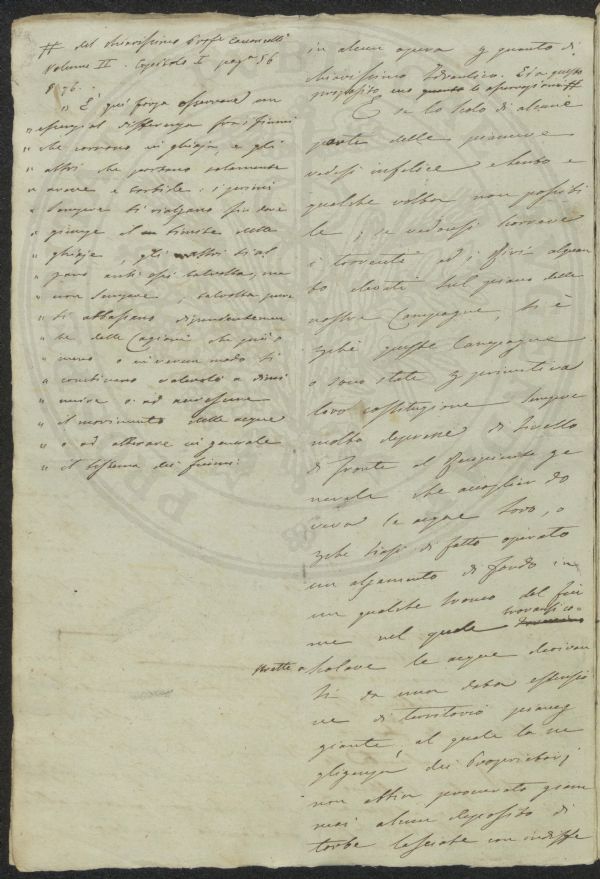 # del chiarissimo Profe
Volume II. Capitolo I pag.a 56
§ 76.
" E' qui forza osservare un
" essenzial differenza fra i fiumi
" che corrono in ghiaja, e gli
" altri che portano solamente
" arene e torbide: i primi
" sempre si rialzano sin dove
" giunge il limite delle
" ghiaje, gli altri si al
" zano anch'essi talvolta, ma
" non sempre; talvolta pure
" si abbassano dipendentemen
" te dalle Cagioni che più o
" meno o in verun modo si
" combinano valevoli a dimi
" nuire o ad accrescere
" il movimento delle acque
" o ad alterare in generale
" il sistema dei fiumi.
in alcun opera quanto di
chiarissimo Idraulico. Ed a questo
proposito, ecco quanto le osservazioni #
E se lo scolo di alcune
parte delle pianure
vedesi infelice e lento e
qualche volta non possibi
le; se vedonsi correre
i torrenti ed i Rivi alquan
to elevati sul piano delle
nostre Campagne, si è
perchè queste Campagne
o sono state per primitiva
loro costituzione sempre
molto depresse di livello
di fronte al Recipiente ge
nerale che accoglier do
veva le acque loro, o
perchè siasi di fatto operato
un alzamento di fondo in
un qualche tronco del fiu
me nel quale trovansi co=
strette a scolare le acque derivan
ti da una data estensio
ne di territorio pianeg
giante, al quale la ne
gligenza dei Proprietarj
non abbia procurato giam
mai alcun deposito di
torbe lasciate con indiffe